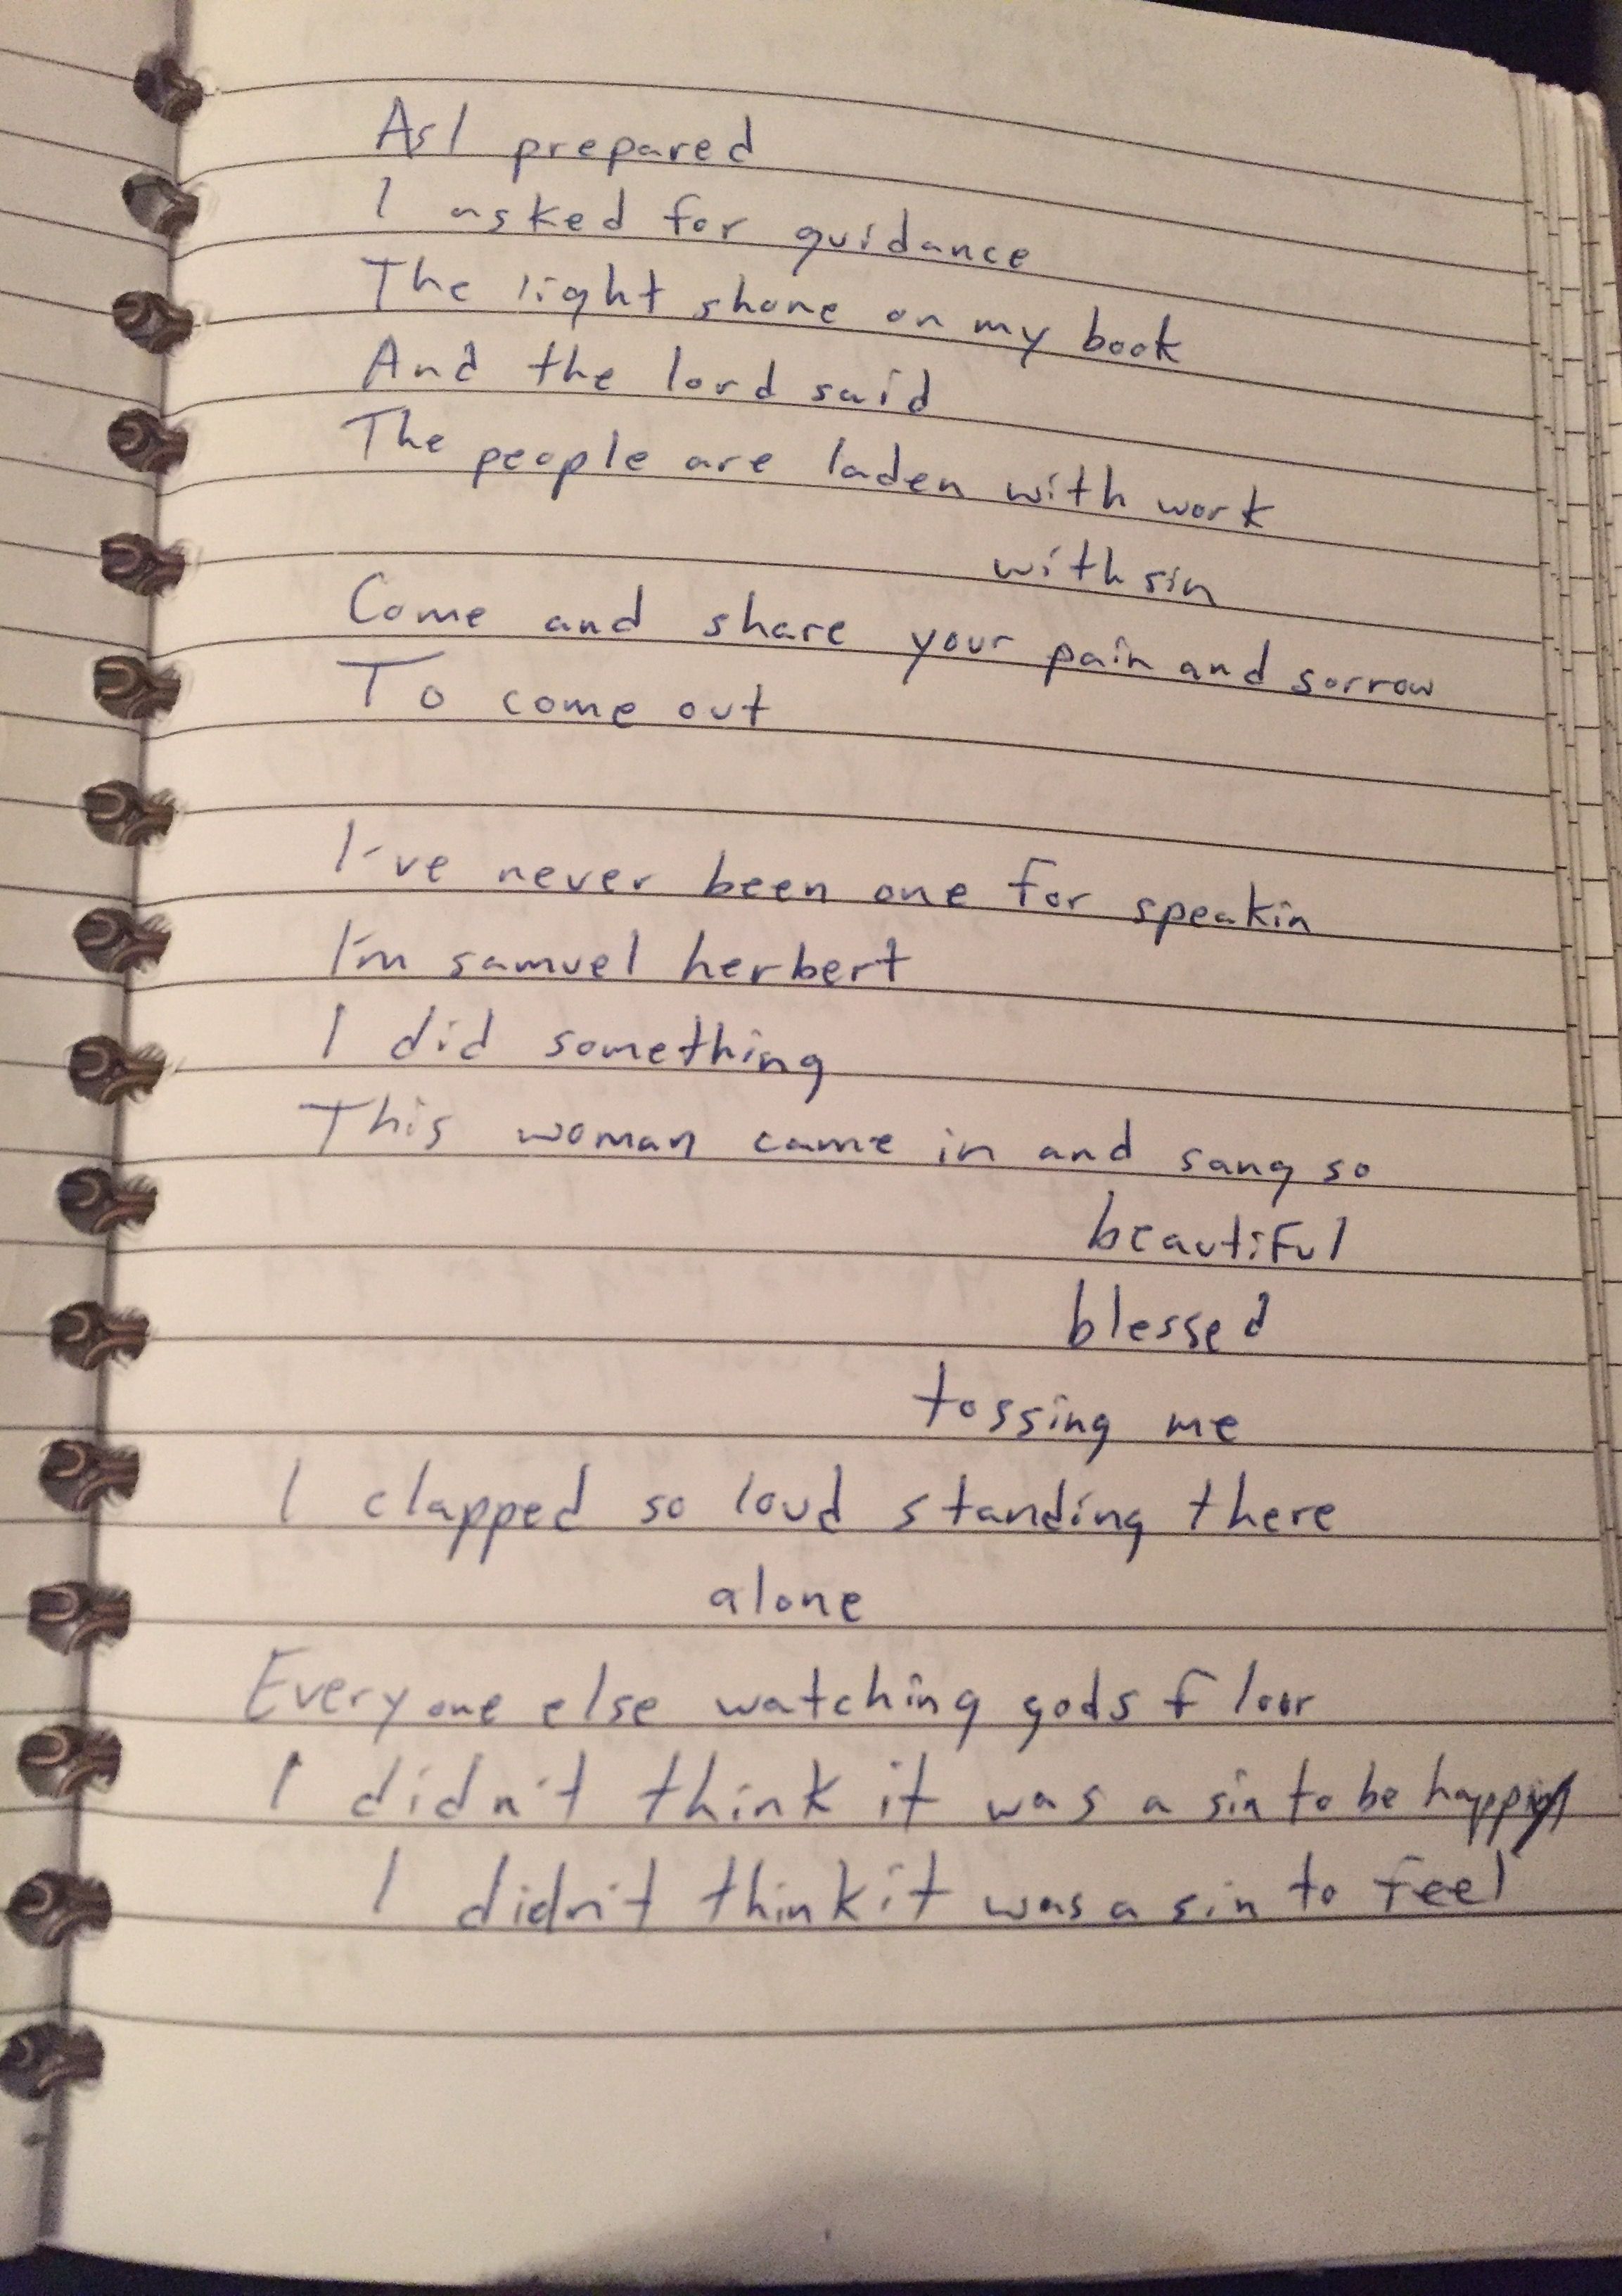 As I prepared
I asked for guidance
The light shone on my book
And the lord said
The people are laden with work
with sin
Come and share your pain and sorrow
To come out
I've never been one for speakin
I'm samuel herbert
I did something
This woman came in and sang so
beautiful
blessed
tossing me
I clapped so loud standing there
alone
Everyone else watching gods floor
I didn't think it was a sin to be happy
I didn't think it was a sin to feel